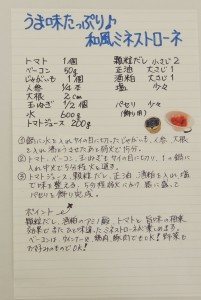 うま味たっぷり♪
和風ミネストローネ
トマト 1個 顆粒だし 小さじ2
ベーコン 50g 正油 大さじ1
じゃがいも 1個 酒粕 大さじ1
人参 1/4本 塩 少々
大根 2cm
玉ねぎ 1/2個 パセリ 少々
水 600g (飾り用)
トマトジュース 200g
① 鍋に水を入れサイの目に切ったじゃがいも、人参、大根
を入れ沸とうさせたあと弱火で15分。
② トマト、ベーコン、玉ねぎもサイの目に切り、①の鍋に
入れ中火で5分程火を通す。
③ トマトジュース、顆粒だし、正油、酒粕を入れ、塩
で味を整える。5分程弱火にかけ器に盛って
パセリを飾り完成。
ポイント
顆粒だし、酒粕のアミノ酸、トマトと旨味の相乗
効果でほっとひと味違ったミネストローネに変わるよ。
ベーコンはウィンナーや鶏肉、豚肉でもOK!野菜も
お好みのものでOK!